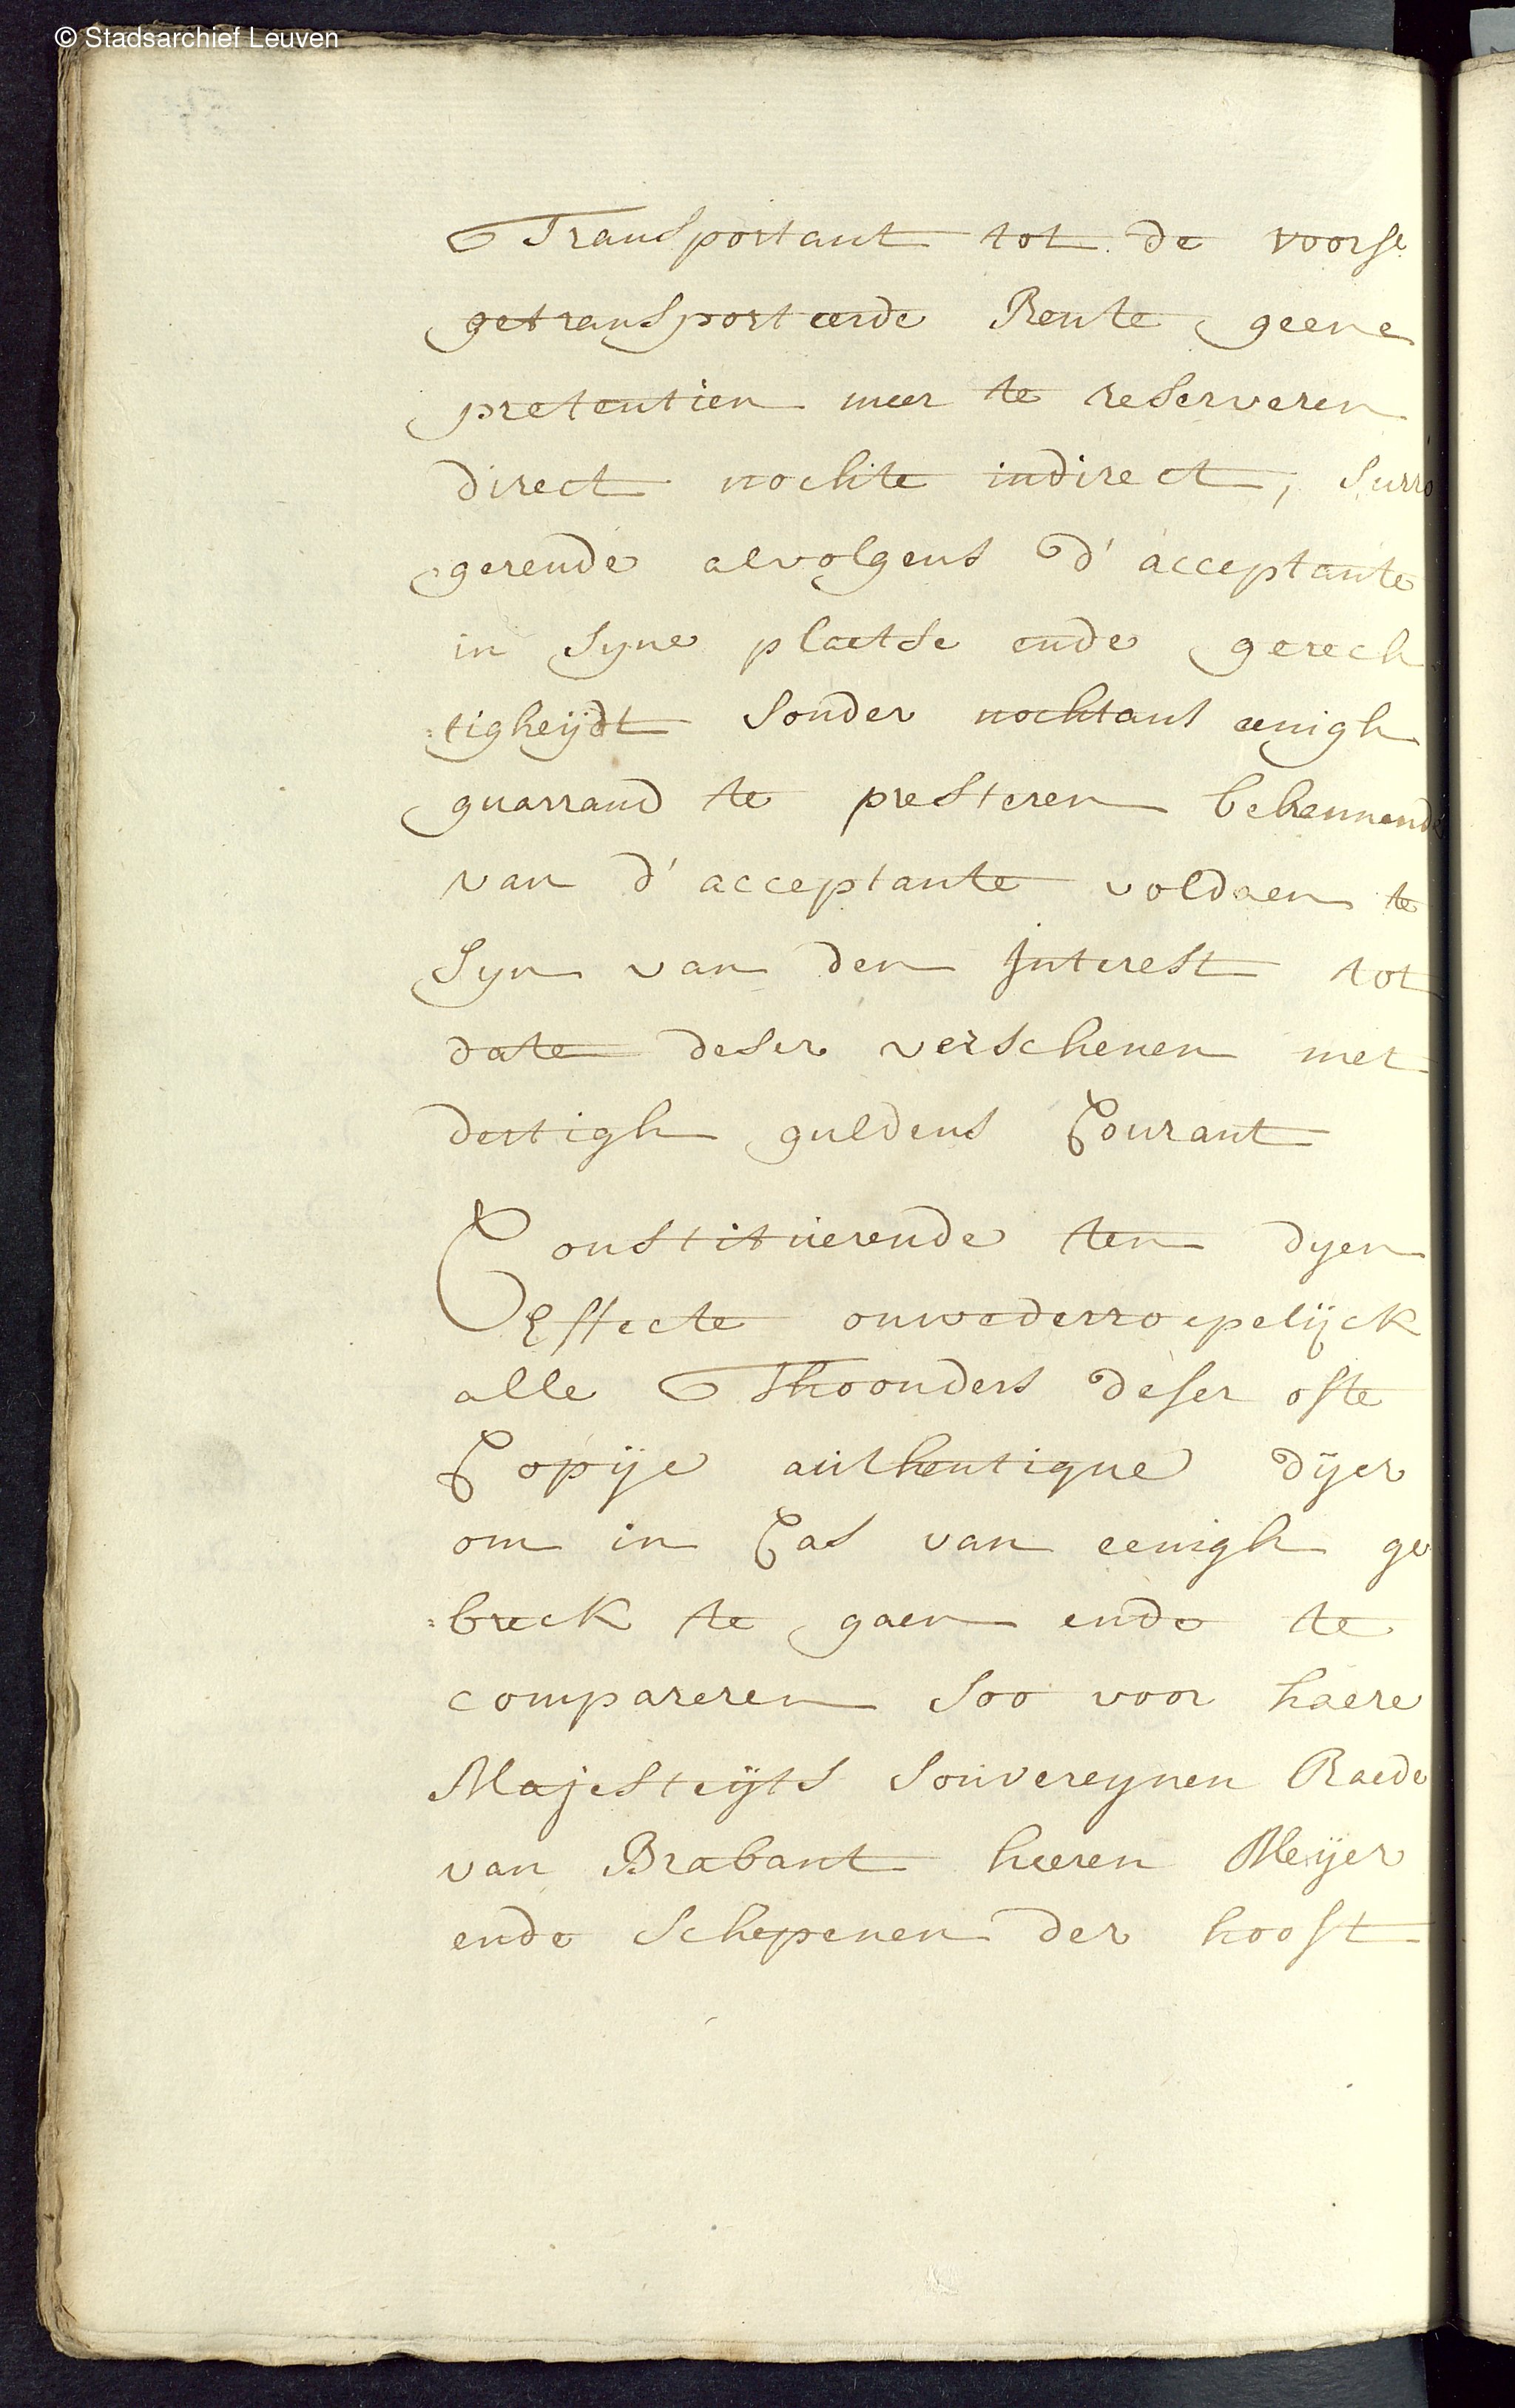 © Stadsarchief Leuven
Transportant tot de voorse
getransporteerde Rente geene
pretentien meer te reserveren
direct nochte indirect, Surro
gerende alvolgens d' acceptante
in Syne plaetse ende gerech
:tigheijdt Sonder nochtans eenigh
guarrand te presteren bekennende
van d' acceptante voldaen te
Syn van den Interest tot
date deser verschenen met
dertigh guldens Courant
Constituerende ten dyen
Effecte onwederroepelijck
alle Thoonders deser ofte
Copije authentique dijer
om in Cas van eenigh ge
:breck te gaen ende te
compareren Soo voor haere
Majesteijts Souvereynen Raede
van Brabant heeren Meijer
ende Schepenen der hooft